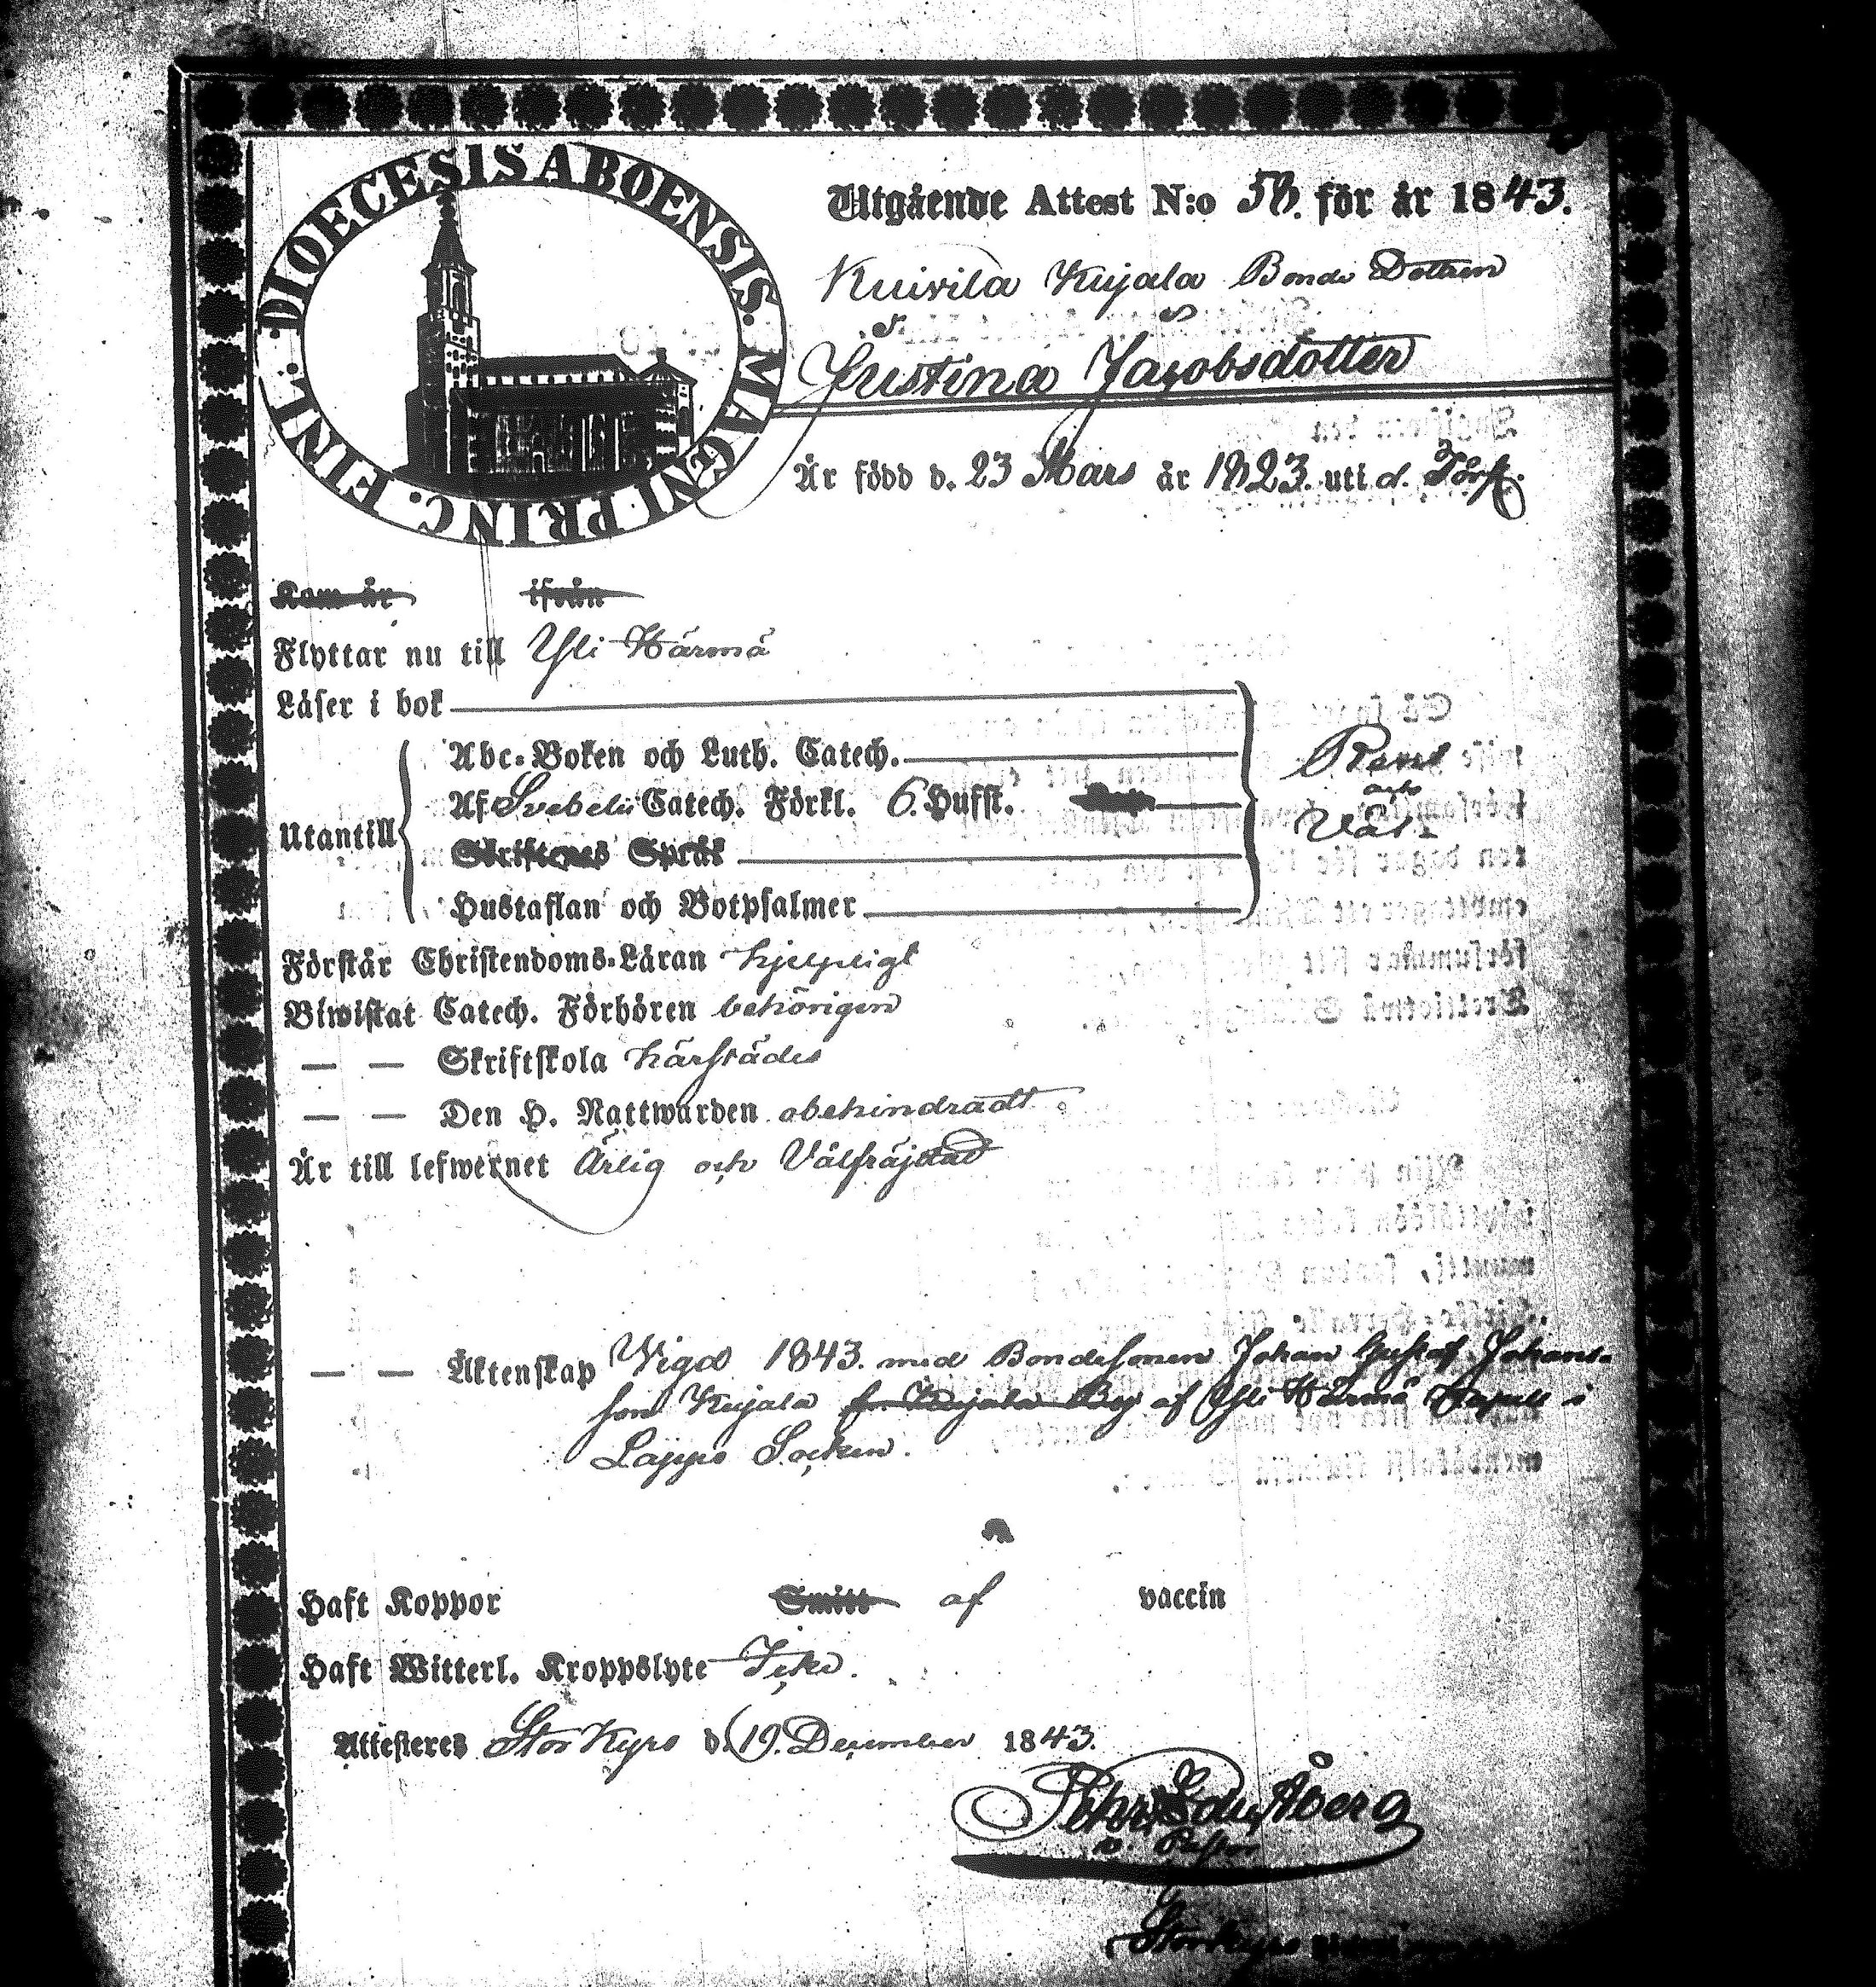 DIOECESIS ABOENSIS. MAGNI PRINC. FINL.
Utgående Attest N:o 58. för år 1843.
Kuivila Kujala Bonde Dottren
Justina Jacobsdotter
Är född d. 23 Mars år 1823. uti d. Förs.
Kom år ifrån
Flyttar nu till Yli Härmä
Läser i bok
Abc-Boken och Luth. Catech.
Rent
och
Väl.
Utantill
Af Svebelii Catech. Förkl. 6. Hufst.
Skriftenes Språk
Hustaflan och Botpsalmer
Förstår Christendoms-Läran hjelpligt
Biwistat Catech. Förhören behörigen
— — Skriftskola härstädes
— — Den H. Nattwarden obehindradt.
Är till lefwernet Ärlig och Välfräjdad
— — Äktenskap Vigd 1843. med Bondesonen Johan Gustaf Johans-
son Kujala fr. Kujala By af Yli Härmä Capell i
Lappo Socken.
Haft Koppor Smitt af vaccin
Haft Witterl. Kroppslyte Icke.
Attesteres Stor Kyro d. 19. December 1843.
Pehr Edu. Åberg
v. Pastor
Storkyro